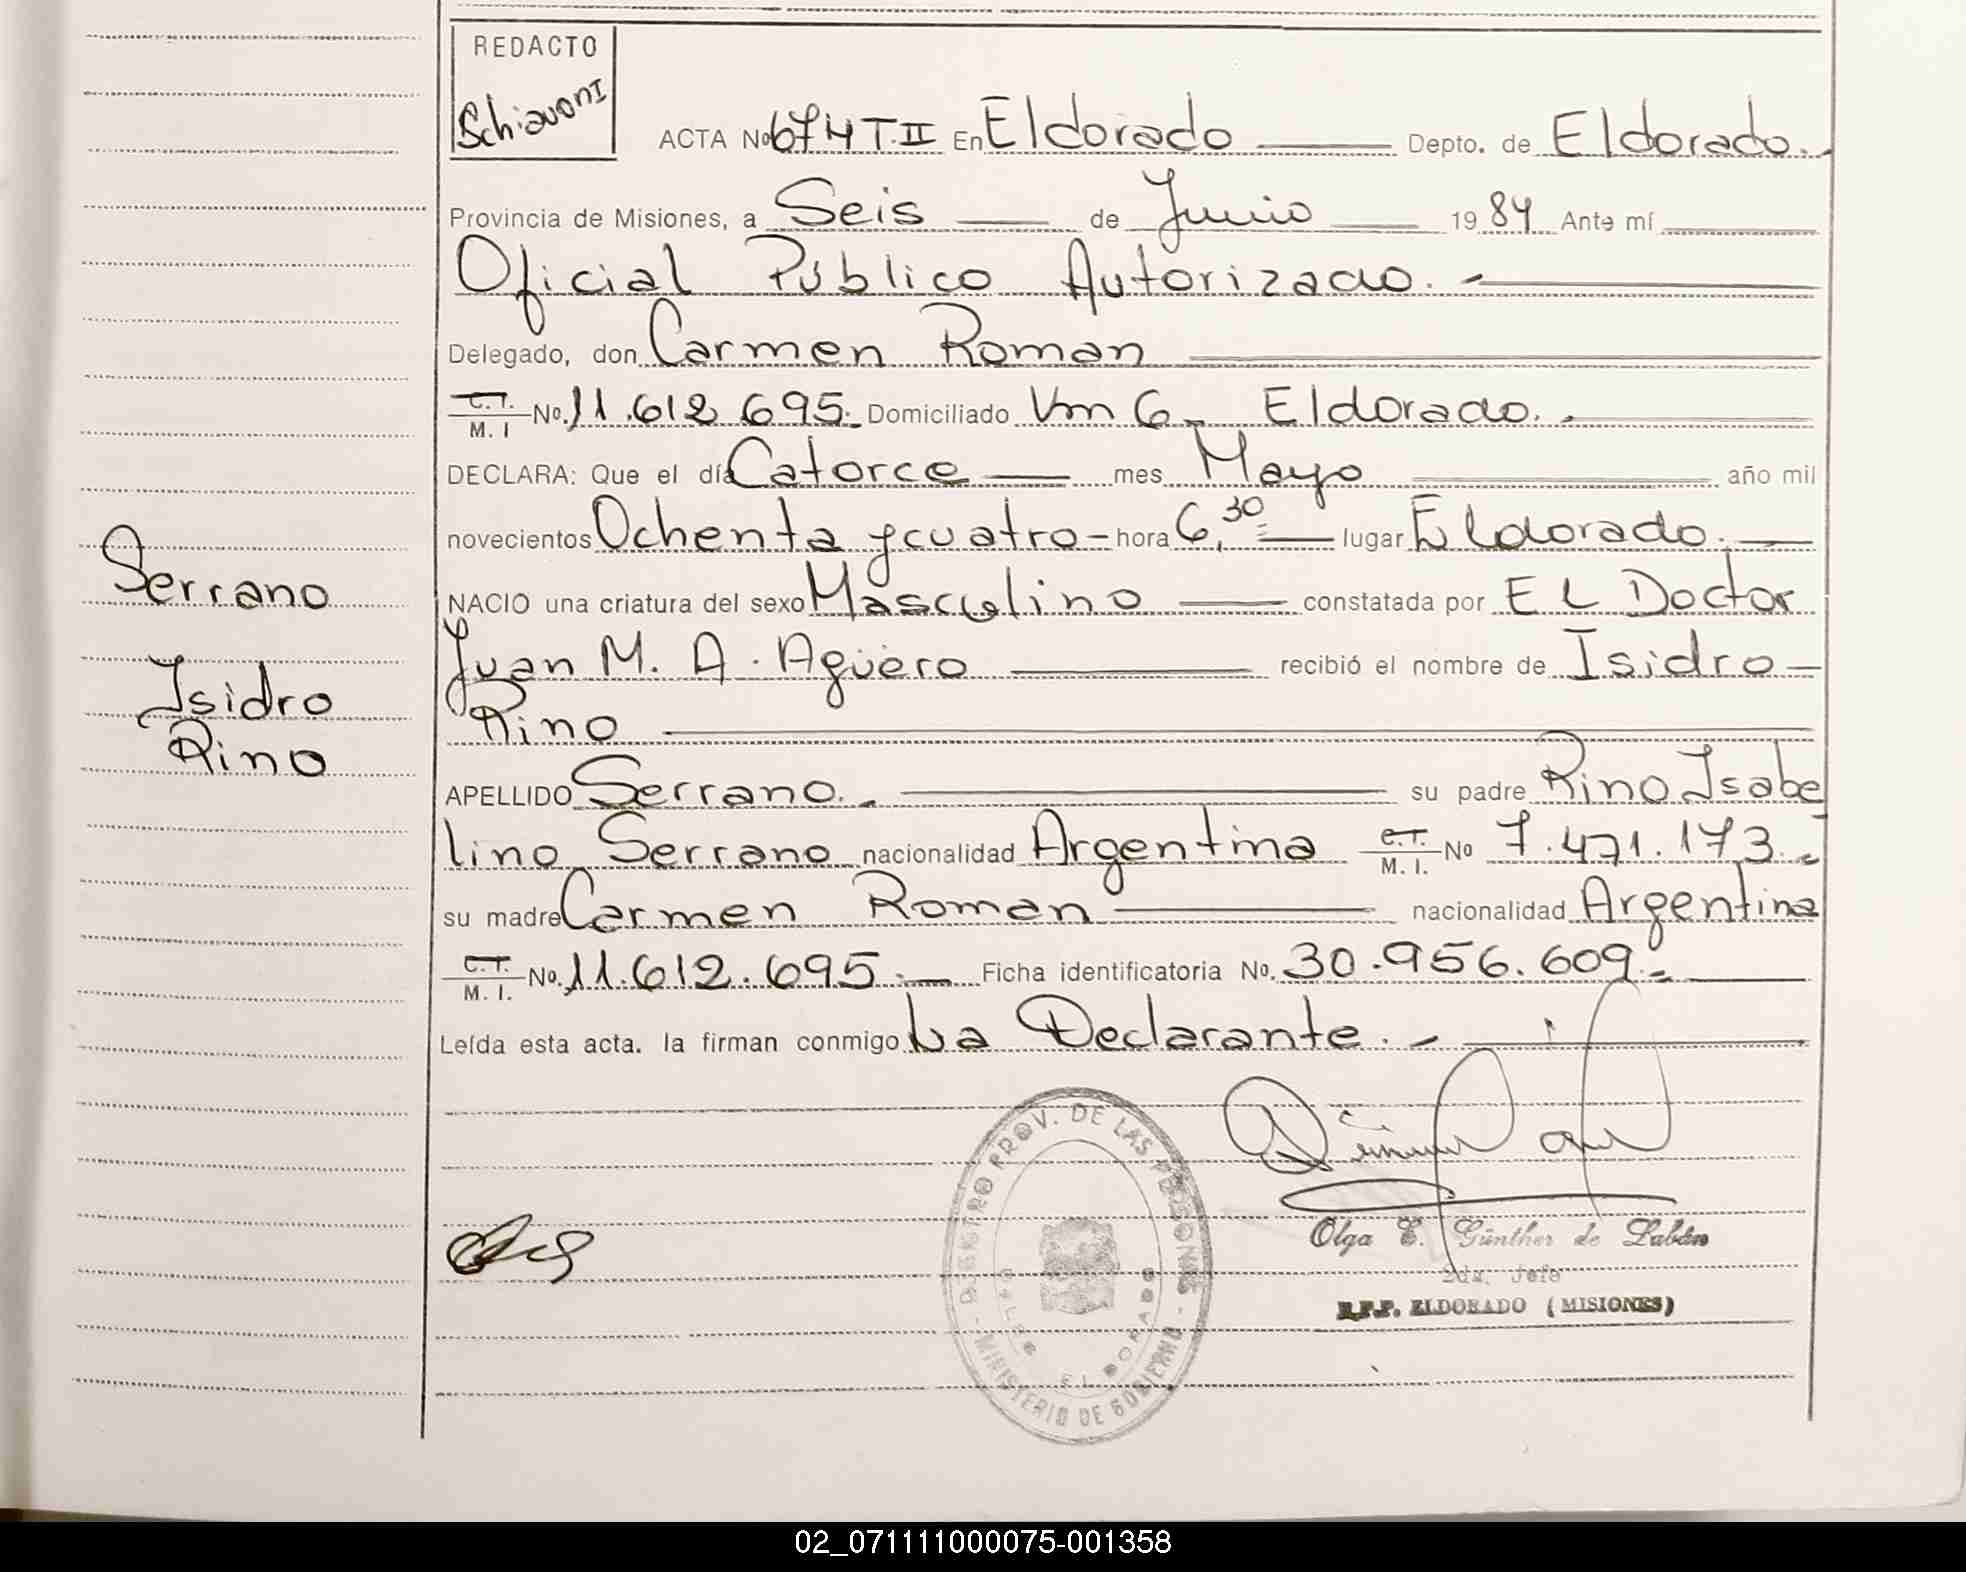 REDACTO
Schiavoni
ACTA No 674 T.II En Eldorado Depto. de Eldorado.
Provincia de Misiones, a Seis de Junio 1984 Ante mí
Oficial Público Autorizado.
Delegado, don Carmen Roman
C.I. M. I No. 11.612.695. Domiciliado Vm 6 Eldorado.
DECLARA: Que el día Catorce mes Mayo año mil
novecientos Ochenta y cuatro - hora 6,30 lugar Eldorado.
NACIO una criatura del sexo Masculino constatada por EL Doctor
Juan M. A. Agüero recibió el nombre de Isidro
Rino
APELLIDO Serrano. su padre Rino Isabe
lino Serrano nacionalidad Argentina C.I. M. I. No 7.471.173.
su madre Carmen Roman nacionalidad Argentina
C.I. M. I. No. 11.612.695. Ficha identificatoria No. 30.956.609.
Leída esta acta. la firman conmigo La Declarante.
Serrano
Isidro
Rino
REGISTRO PROV. DE LAS PERSONAS
MINISTERIO DE GOBIERNO
ELDORADO
Olga E. Günther de Labán
2da. Jefe
R.P.P. ELDORADO (MISIONES)
02_071111000075-001358